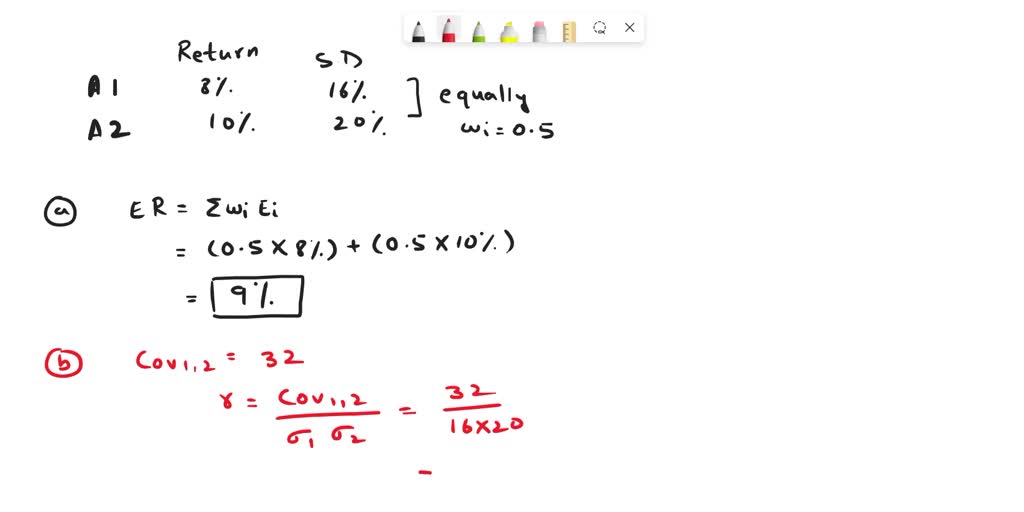 Return SD
A1 8% 16% ] equally
A2 10% 20% wi = 0.5
(a) ER = Σ wi Ei
= (0.5 × 8%) + (0.5 × 10%)
= 9%
(b) Cov1,2 = 32
r = Cov1,2 / σ1 σ2 = 32 / 16×20
=